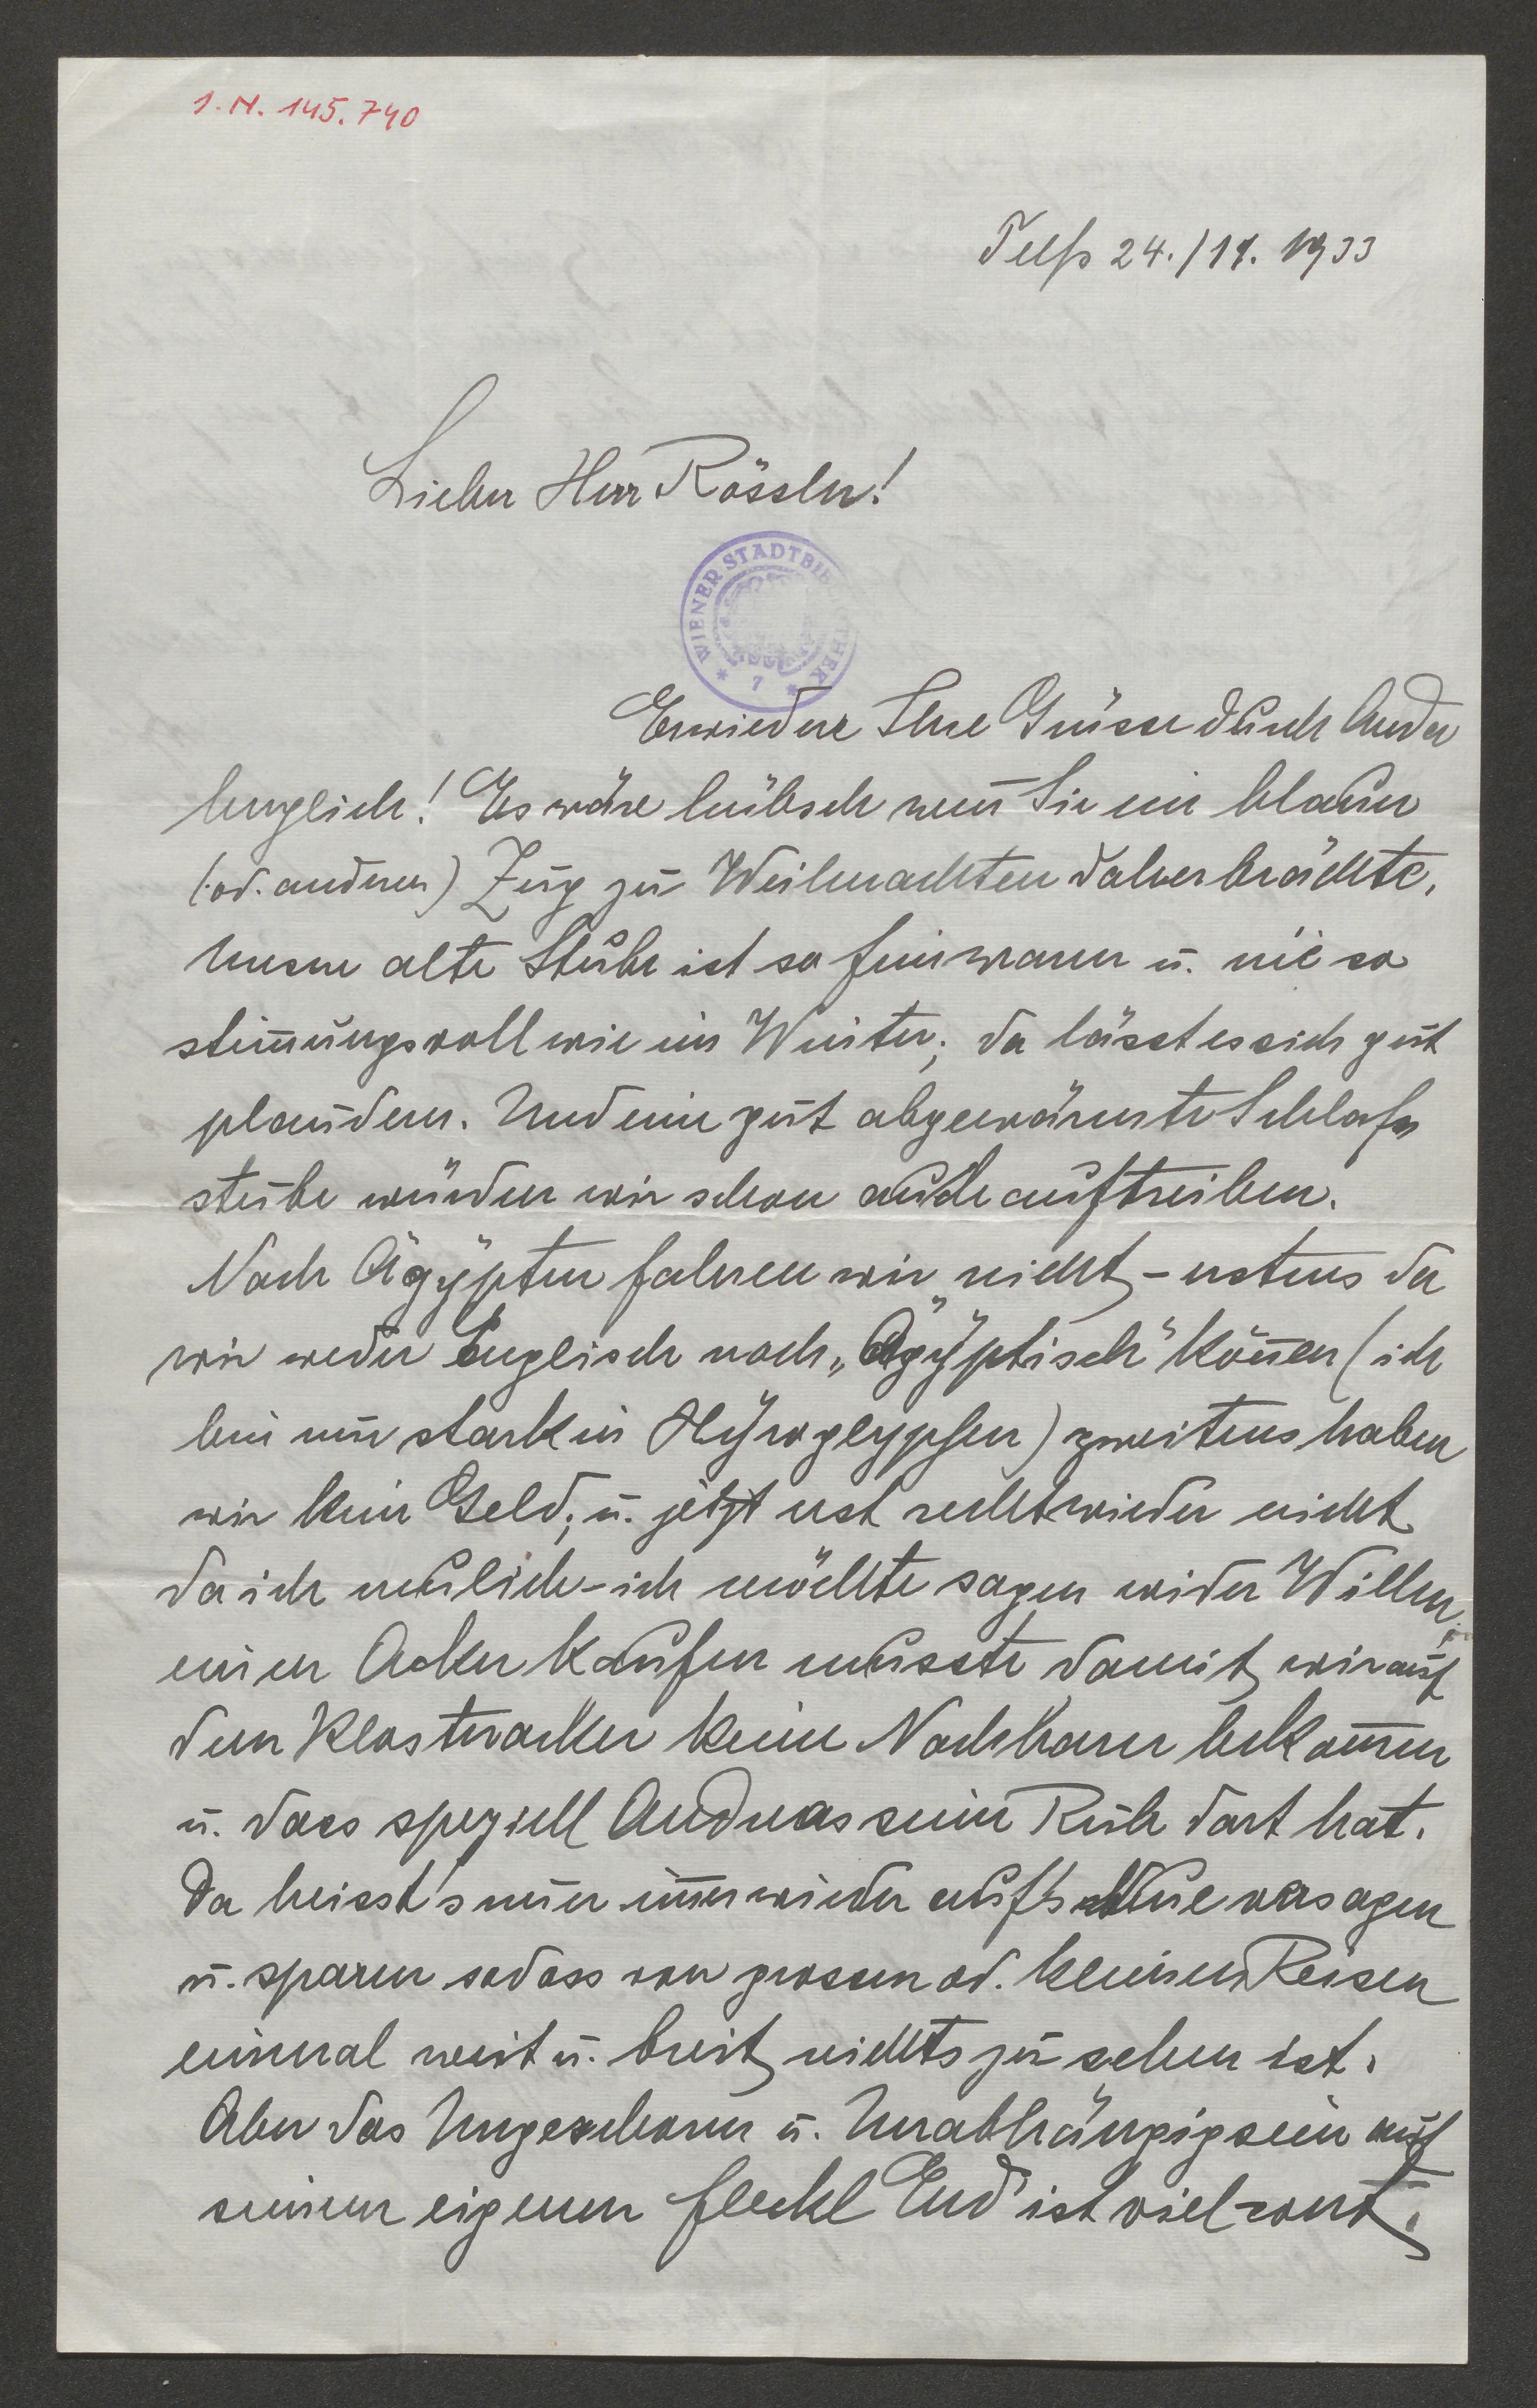 I. N. 145.740
Telfs 24./11. 1933
Lieber Herr Rössler!
WIENER STADTBIBLIOTHEK
* 7 *
Erwiedere Ihre Grüsse durch Andre
herzlich! Es wäre hübsch wen̄ Sie ein blauer
(od. anderer) Zug zu Weihnachten daherbrächte.
Unsere alte Stube ist so fein warm u. nie so
stim̄ungsvoll wie im Winter; da lässt es sich gut
plaudern. Und eine gut abgewärmte Schlaf=
stube würden wir schon auch auftreiben.
Nach Ägÿpten fahren wir nicht – erstens da
wir weder Englisch noch „Ägÿptisch" kön̄en (ich
bin nur stark in Hÿroglyphen) zweitens haben
wir kein Geld; u. jetzt erst recht wieder nicht
da ich neulich – ich möchte sagen wider Willen
einen Acker kaufen musste damit wir auf
dem Klosteracker keine Nachbarn bekom̄en
u. dass speziell Andreas seine Ruhe dort hat.
Da heisst's nun im̄er wieder auf's Neue versagen
u. sparen sodass von grossen od. kleinen Reisen
einmal weit u. breit nichts zu sehen ist.
Aber das Ungeschoren u. Unabhängigsein auf
seinem eigenen Fleckl Erd' ist viel wert.